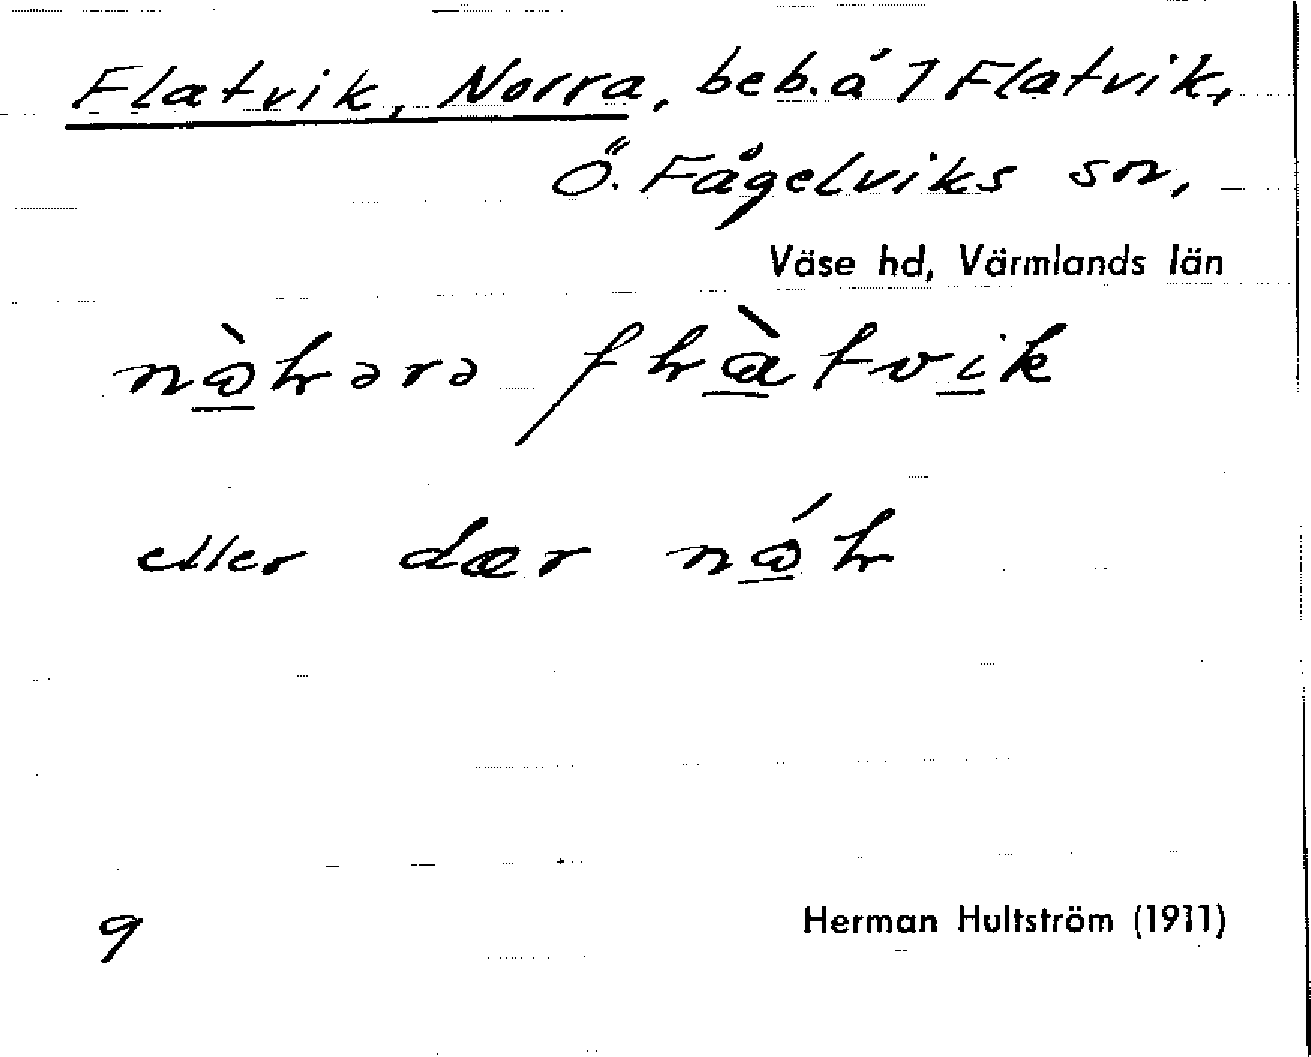 Flatvik, Norra, beb. å 7 Flatvik,
Ö. Fågelviks sn,
Väse hd, Värmlands län
eller dær
9
Herman Hultström (1911)